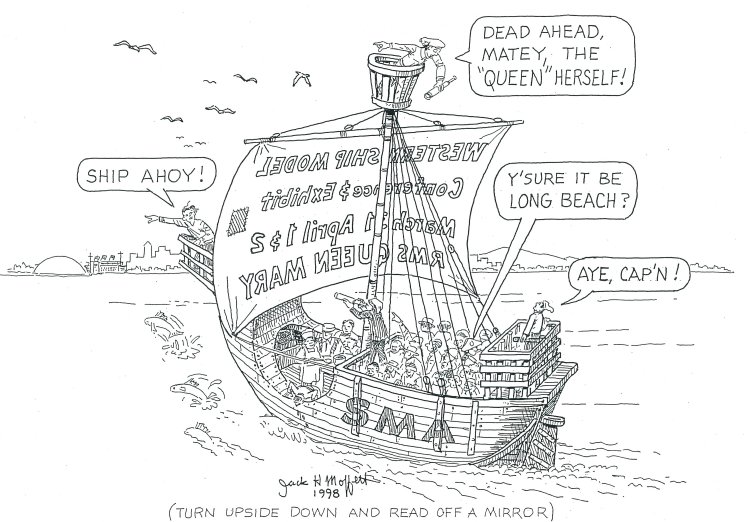 DEAD AHEAD,
MATEY, THE
"QUEEN" HERSELF!
SHIP AHOY!
WESTERN SHIP MODEL
Conference & Exhibit
March 31 April 1 & 2
RMS QUEEN MARY
Y'SURE IT BE
LONG BEACH?
AYE, CAP'N!
SMA
Jack H Moffett
1998
(TURN UPSIDE DOWN AND READ OFF A MIRROR)